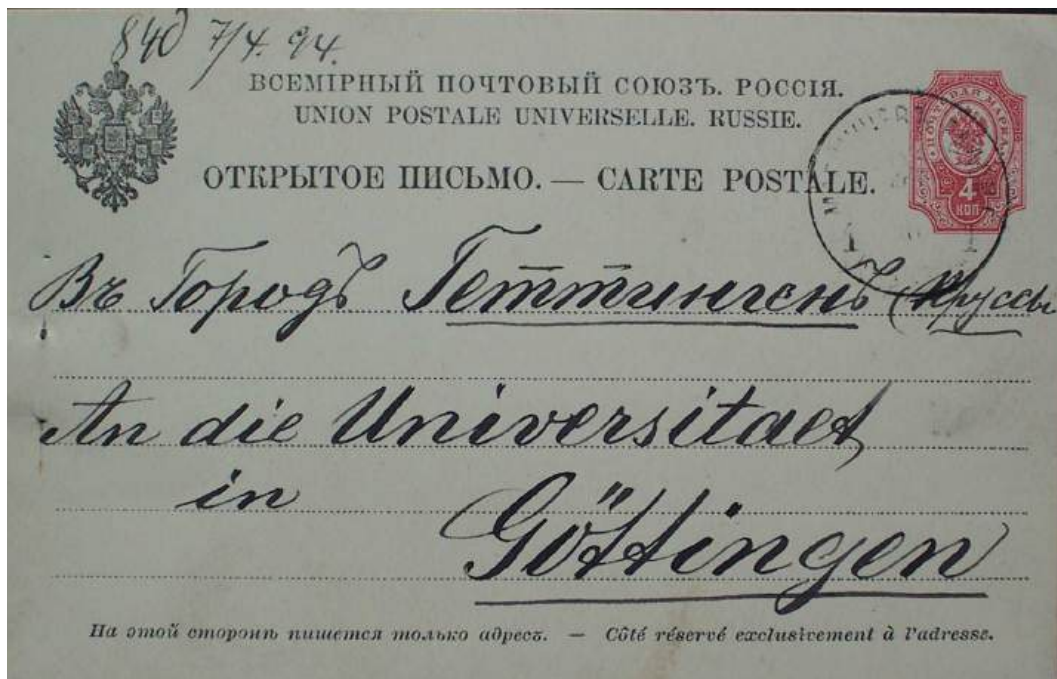 840 7/4. 94.
ВСЕМІРНЫЙ ПОЧТОВЫЙ СОЮЗЪ. РОССІЯ.
UNION POSTALE UNIVERSELLE. RUSSIE.
ОТКРЫТОЕ ПИСЬМО. — CARTE POSTALE.
ПОЧТОВАЯ МАРКА
4
КОП
1 1
Въ Городъ Геттингенъ (Пруссы
An die Universitaet
in
Göttingen
На этой сторонѣ пишется только адресъ. — Côté réservé exclusivement à l'adresse.